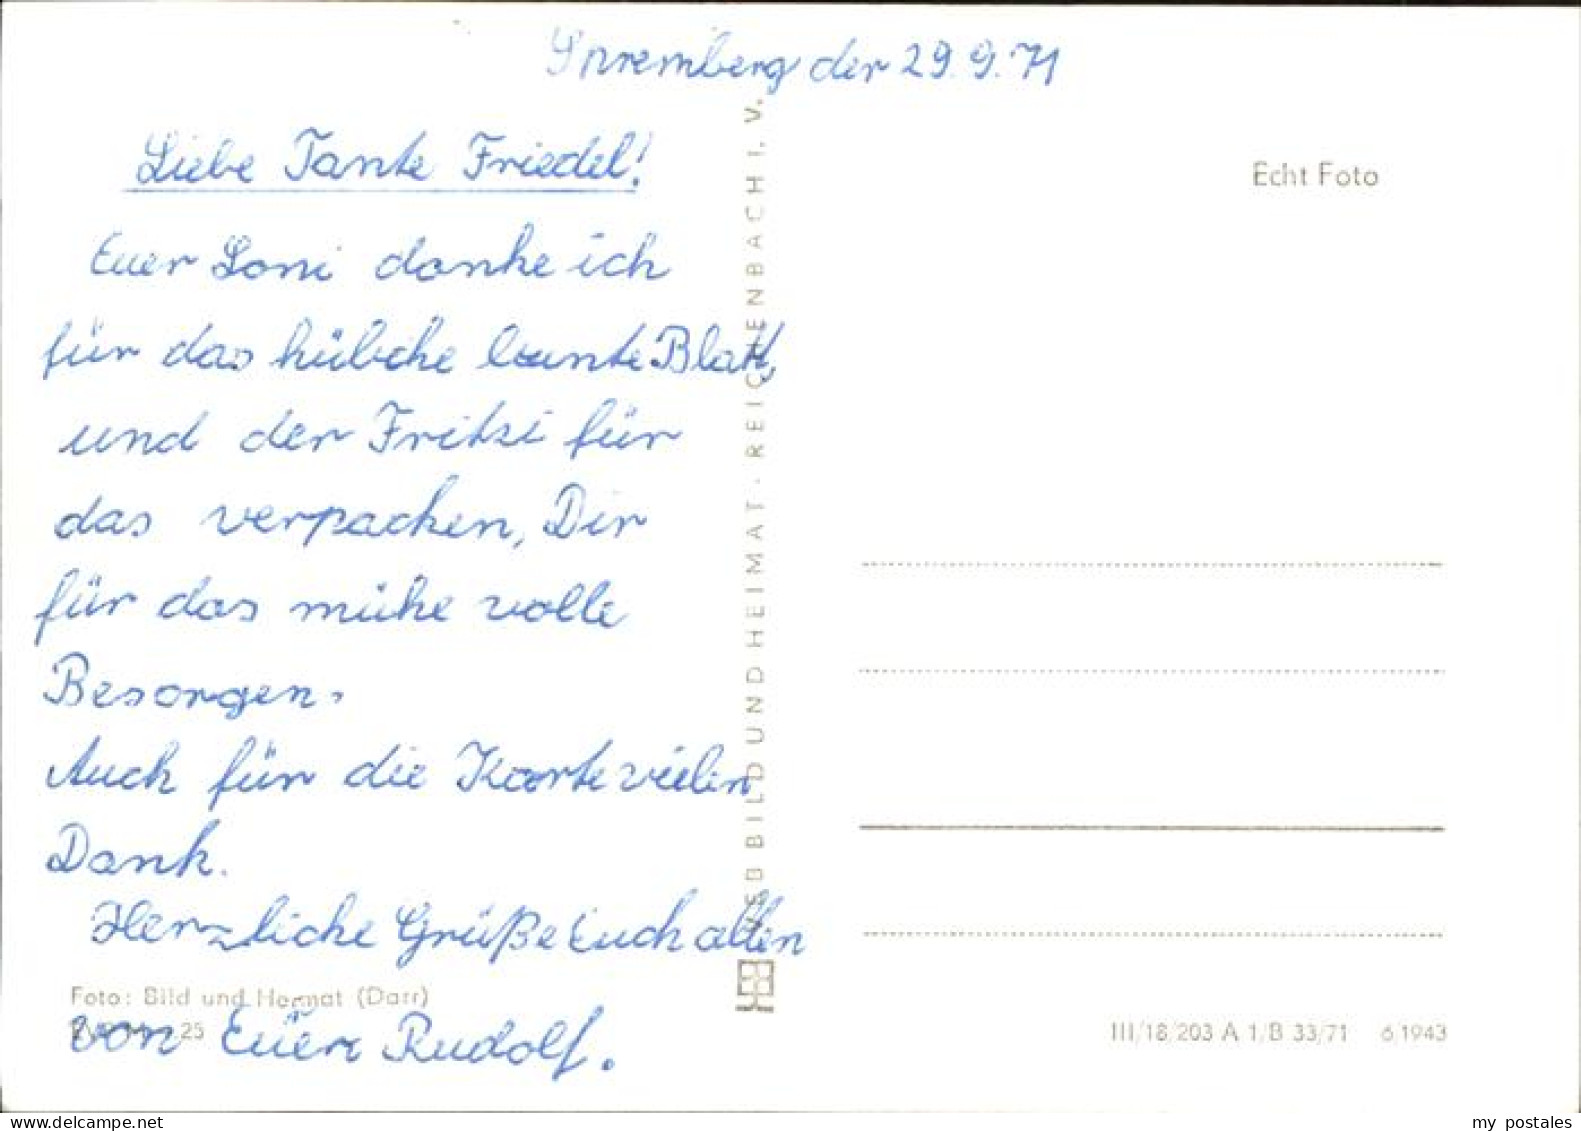 Spremberg der 29.9.71
Liebe Tante Friedel!
Euer Loni danke ich
für das hübche bunte Blatt,
und der Fritzi für
das verpacken, Dir
für das mühe volle
Besorgen.
Auch für die Karte vielen
Dank.
Herzliche Grüße Euch allen
von Euer Rudolf.
Foto: Bild und Heimat (Darr)
25
VEB BILD UND HEIMAT · REICHENBACH I. V.
Echt Foto
III/18/203 A 1/B 33/71 6/1943
my postales